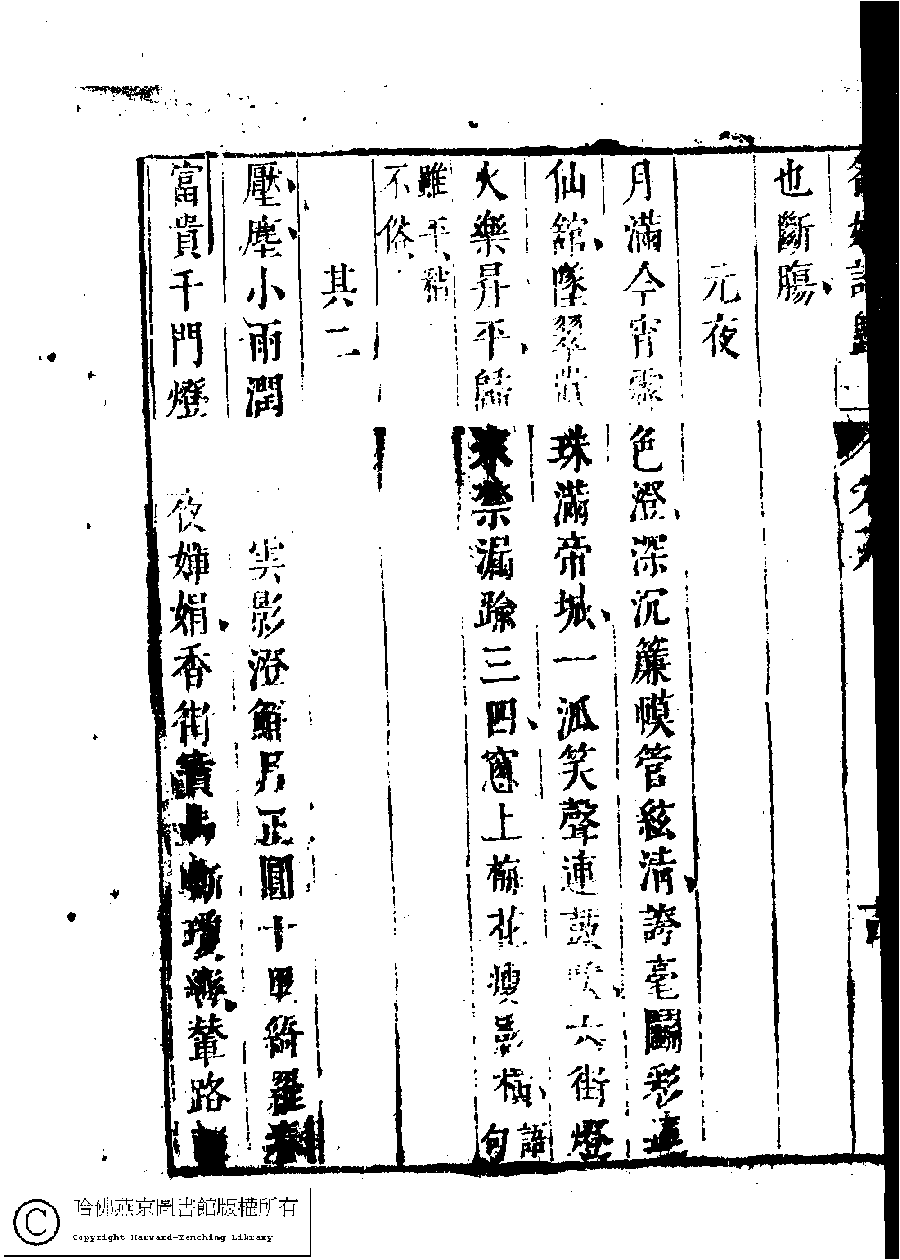 名媛詩歸
也斷腸
元夜
月滿今宵霽色澄深沉簾幙管絃清誇毫鬬彩連
仙舘墜翠遺珠滿帝城一派笑聲連鼓吹六街燈
火樂昇平歸來禁漏踰三四窓上梅花瘦影橫語句
雖平穩
不俗
其二
壓塵小雨潤 雲影澄鮮月正圓十里綺羅春
富貴千門燈 夜嬋娟香街寶馬嘶瓊轡輦路
哈佛燕京圖書館版權所有
Copyright Harvard-Yenching Library